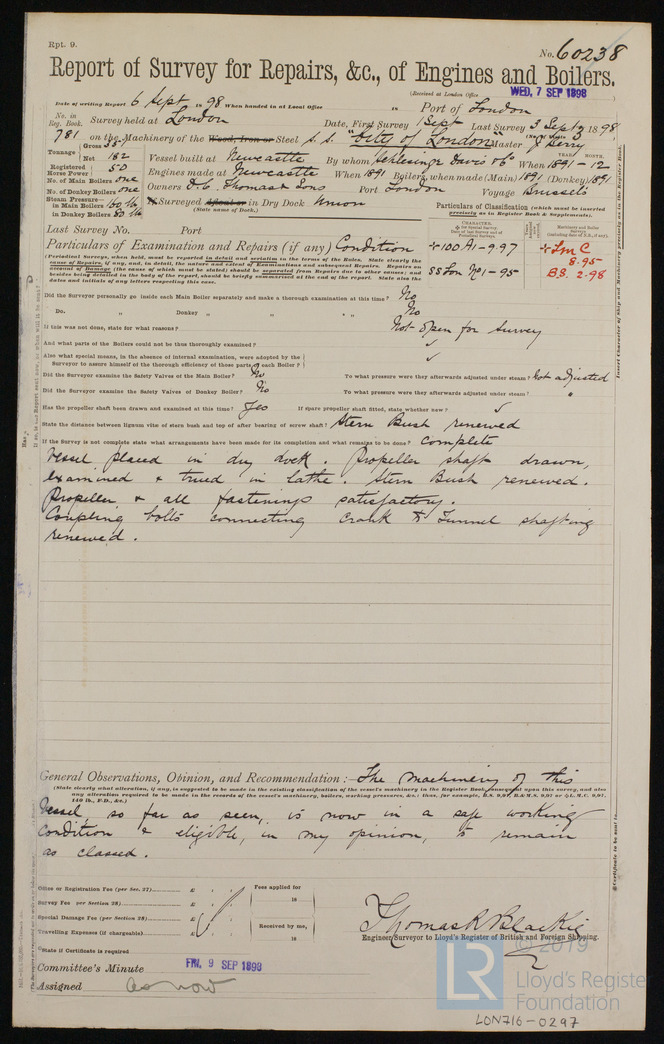 Rpt. 9.
No. 60238
Report of Survey for Repairs, &c., of Engines and Boilers.
(Received at London Office WED, 7 SEP 1898)
Date of writing Report 6 Sept 1898 When handed in at Local Office 18 Port of London
No. in Reg. Book. Survey held at London Date, First Survey 1 Sept Last Survey 3 Sept 1898
781 on the Machinery of the Wood, Iron or Steel s.s. "City of London" Master J Berry
Tonnage Gross 331
Net 182 Vessel built at Newcastle By whom Schlesinger Davis & Co When 1891-12
Registered Horse Power 50 Engines made at Newcastle When 1891 Boilers, when made (Main) 1891 (Donkey) 1891
No. of Main Boilers one
No. of Donkey Boilers one Owners D. C. Thomas & Sons Port London Voyage Brussels
Steam Pressure in Main Boilers 160 lb
in Donkey Boilers 80 lb Surveyed Afloat or in Dry Dock Union
(State name of Dock.)
Particulars of Classification (which must be inserted precisely as in Register Book & Supplements).
Last Survey No. Port
+100 A1-9.97
SS Lon No1-95
+LMC 8.95
BS. 2.98
Particulars of Examination and Repairs (if any) Condition
(Periodical Surveys, when held, must be reported in detail and seriatim in the terms of the Rules. State clearly the
Did the Surveyor personally go inside each Main Boiler separately and make a thorough examination at this time? No
Do. " Donkey " " " " No
If this was not done, state for what reasons? Not open for survey
And what parts of the Boilers could not be thus thoroughly examined? ✓
Also what special means, in the absence of internal examination, were adopted by the
Surveyor to assure himself of the thorough efficiency of those parts of each Boiler? ✓
Did the Surveyor examine the Safety Valves of the Main Boiler? No To what pressure were they afterwards adjusted under steam? Not adjusted
Did the Surveyor examine the Safety Valves of Donkey Boiler? No To what pressure were they afterwards adjusted under steam? "
Has the propeller shaft been drawn and examined at this time? Yes If spare propeller shaft fitted, state whether new? ✓
State the distance between lignum vitæ of stern bush and top of after bearing of screw shaft? Stern Bush renewed
If the Survey is not complete state what arrangements have been made for its completion and what remains to be done? Complete
Vessel placed in dry dock. Propeller shaft drawn,
examined & trued in lathe. Stern Bush renewed.
Propeller & all fastenings satisfactory.
Coupling bolts connecting crank & Tunnel shafting
renewed.
General Observations, Opinion, and Recommendation:— The machinery of this
(State clearly what alteration, if any, is suggested to be made in the existing classification of the vessel's machinery in the Register Book consequent upon this survey, and also
any alteration required to be made in the records of the vessel's machinery, boilers, working pressures, &c.: thus, for example, B.S. 9,97, B.& M.S. 9,97 or +L.M.C. 9,97,
140 lb., F.D., &c.)
Vessel, so far as seen, is now in a safe working
condition & eligible, in my opinion, to remain
as classed.
Office or Registration Fee (per Sec. 27) £ : : Fees applied for
Survey Fee (per Section 28) £ : : 18
Special Damage Fee (per Section 28) £ : : Received by me,
Travelling Expenses (if chargeable) £ : : 18
Thomas R Blackie
Engineer Surveyor to Lloyd's Register of British and Foreign Shipping.
State if Certificate is required
Committee's Minute FRI. 9 SEP 1898
Assigned as now
© 2019
LR
Lloyd's Register
Foundation
LON716-0297